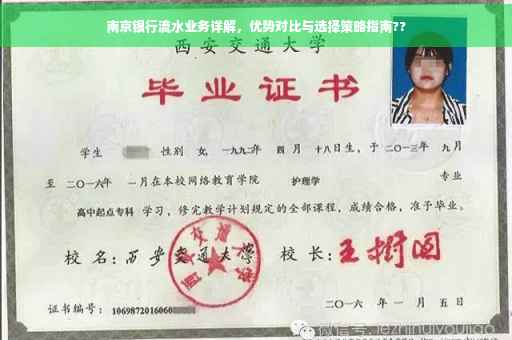 南京银行流水业务详解，优势对比与选择策略指南??
西安交通大学
毕业证书
学生 性别 女, 一九九二年 四 月 十八日生, 于 二〇一三年 九月
至 二〇一六年 一月在本校网络教育学院 护理学 专业
高中起点专科 学习, 修完教学计划规定的全部课程, 成绩合格, 准予毕业。
校 名: 西安交通大学 校 长: 王树国
证书编号: 1069872016060
二〇一六 年 一 月 五 日
微信号: jezhihuiyoujiao